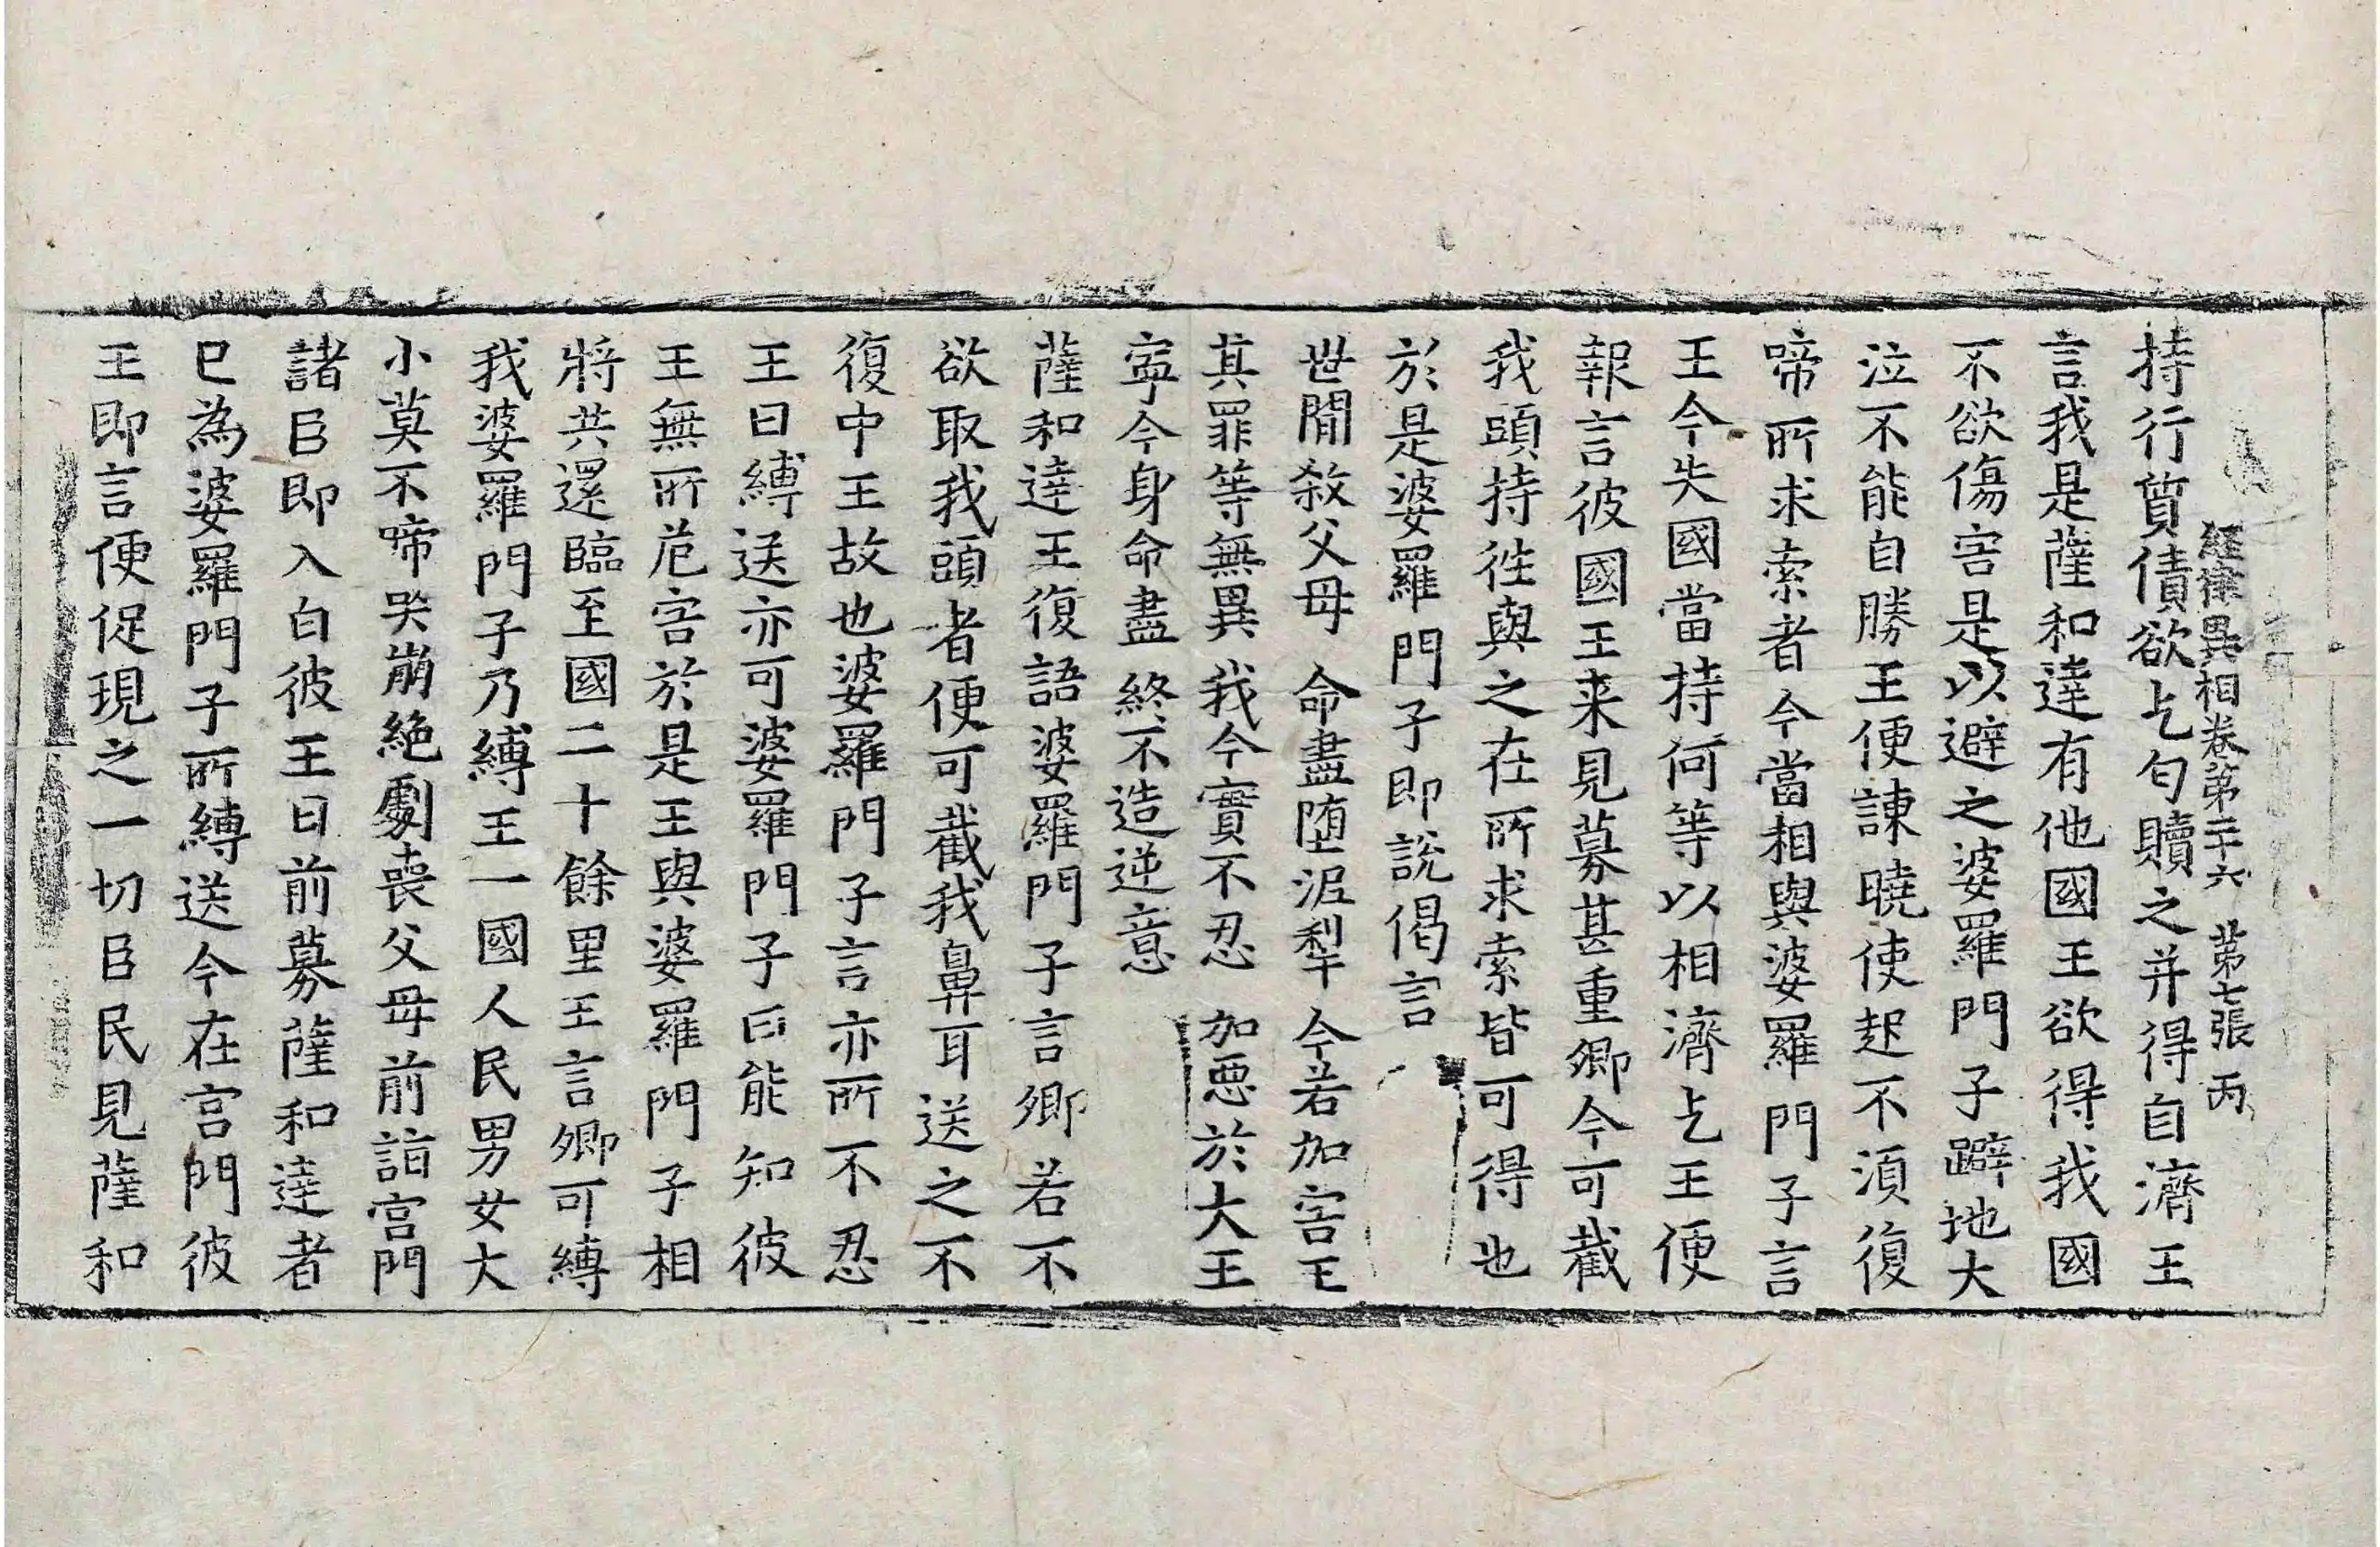 經律異相卷第二十六 第七張 丙
持行質債欲乞匃贖之并得自濟王
言我是薩和達有他國王欲得我國
不欲傷害是以避之婆羅門子躃地大
泣不能自勝王便諫曉使起不湏復
啼所求索者今當相與婆羅門子言
王今失國當持何等以相濟乞王便
報言彼國王来見募甚重卿今可截
我頭持徃與之在所求索皆可得也
於是婆羅門子即說偈言
世閒殺父母 命盡墮泥犁 今若加害王
其罪等無異 我今實不忍 加惡於大王
寧今身命盡 終不造逆意
薩和達王復語婆羅門子言卿若不
欲取我頭者便可截我鼻耳送之不
復中王故也婆羅門子言亦所不忍
王曰縛送亦可婆羅門子曰能知彼
王無所危害於是王與婆羅門子相
將共還臨至國二十餘里王言卿可縛
我婆羅門子乃縛王一國人民男女大
小莫不啼哭崩絶劇喪父母前詣宮門
諸臣即入白彼王曰前募薩和達者
已為婆羅門子所縛送今在宮門彼
王即言便促現之一切臣民見薩和